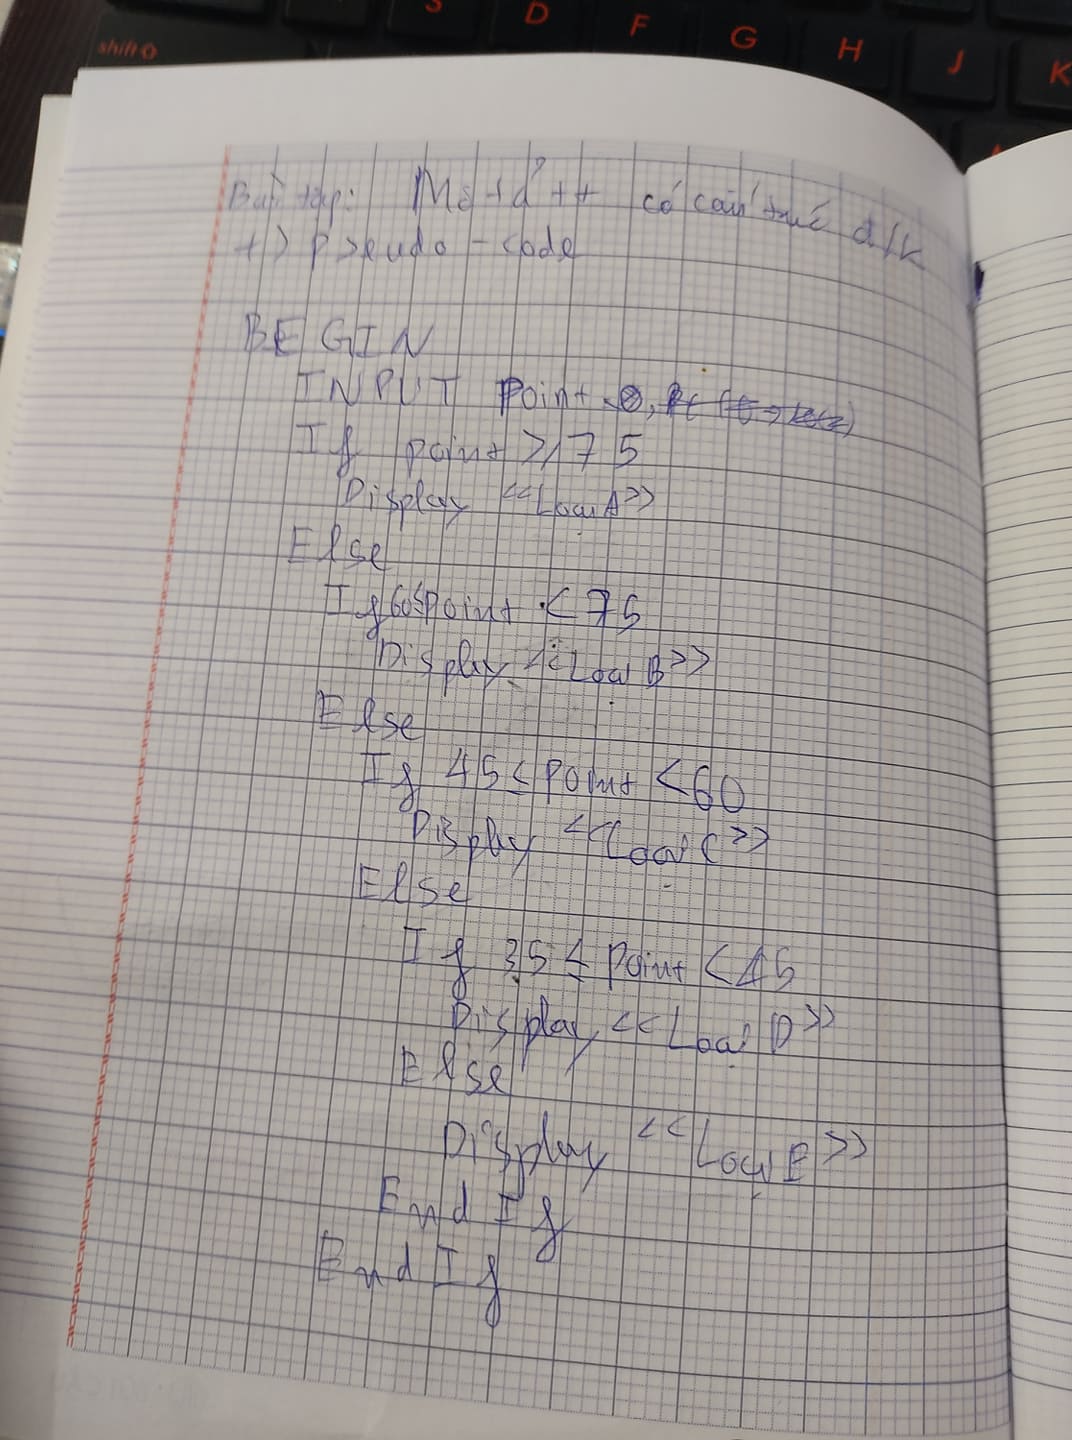 shift
S D F G H J K
Bài tập: Mô tả tt có cấu trúc đ/k
+) Pseudo-code
BEGIN
INPUT Point
If point ≥ 75
Display <<Loại A>>
Else
If 60≤point < 75
Display <<Loại B>>
Else
If 45 ≤ point < 60
Display <<Loại C>>
Else
If 35 ≤ point < 45
Display <<Loại D>>
Else
Display <<Loại E>>
End If
End If